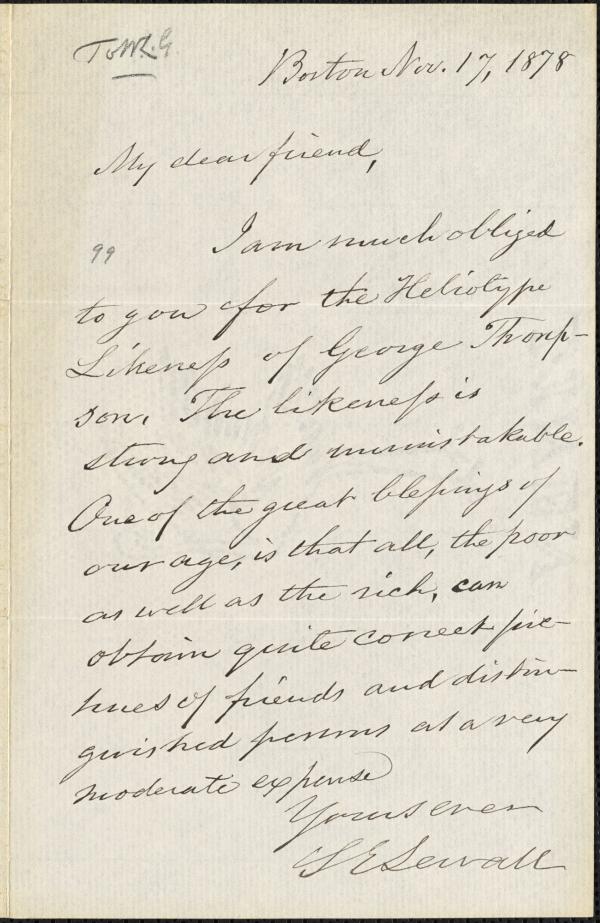 To W.L.G.
Boston Nov. 17, 1878
My dear friend,
99
I am much obliged
to you for the Heliotype
Likeness of George Thomp-
son. The likeness is
strong and unmistakable.
One of the great blessings of
our age, is that all, the poor
as well as the rich, can
obtain quite correct pic-
tures of friends and distin-
guished persons at a very
moderate expense
Yours ever
S E Sewall